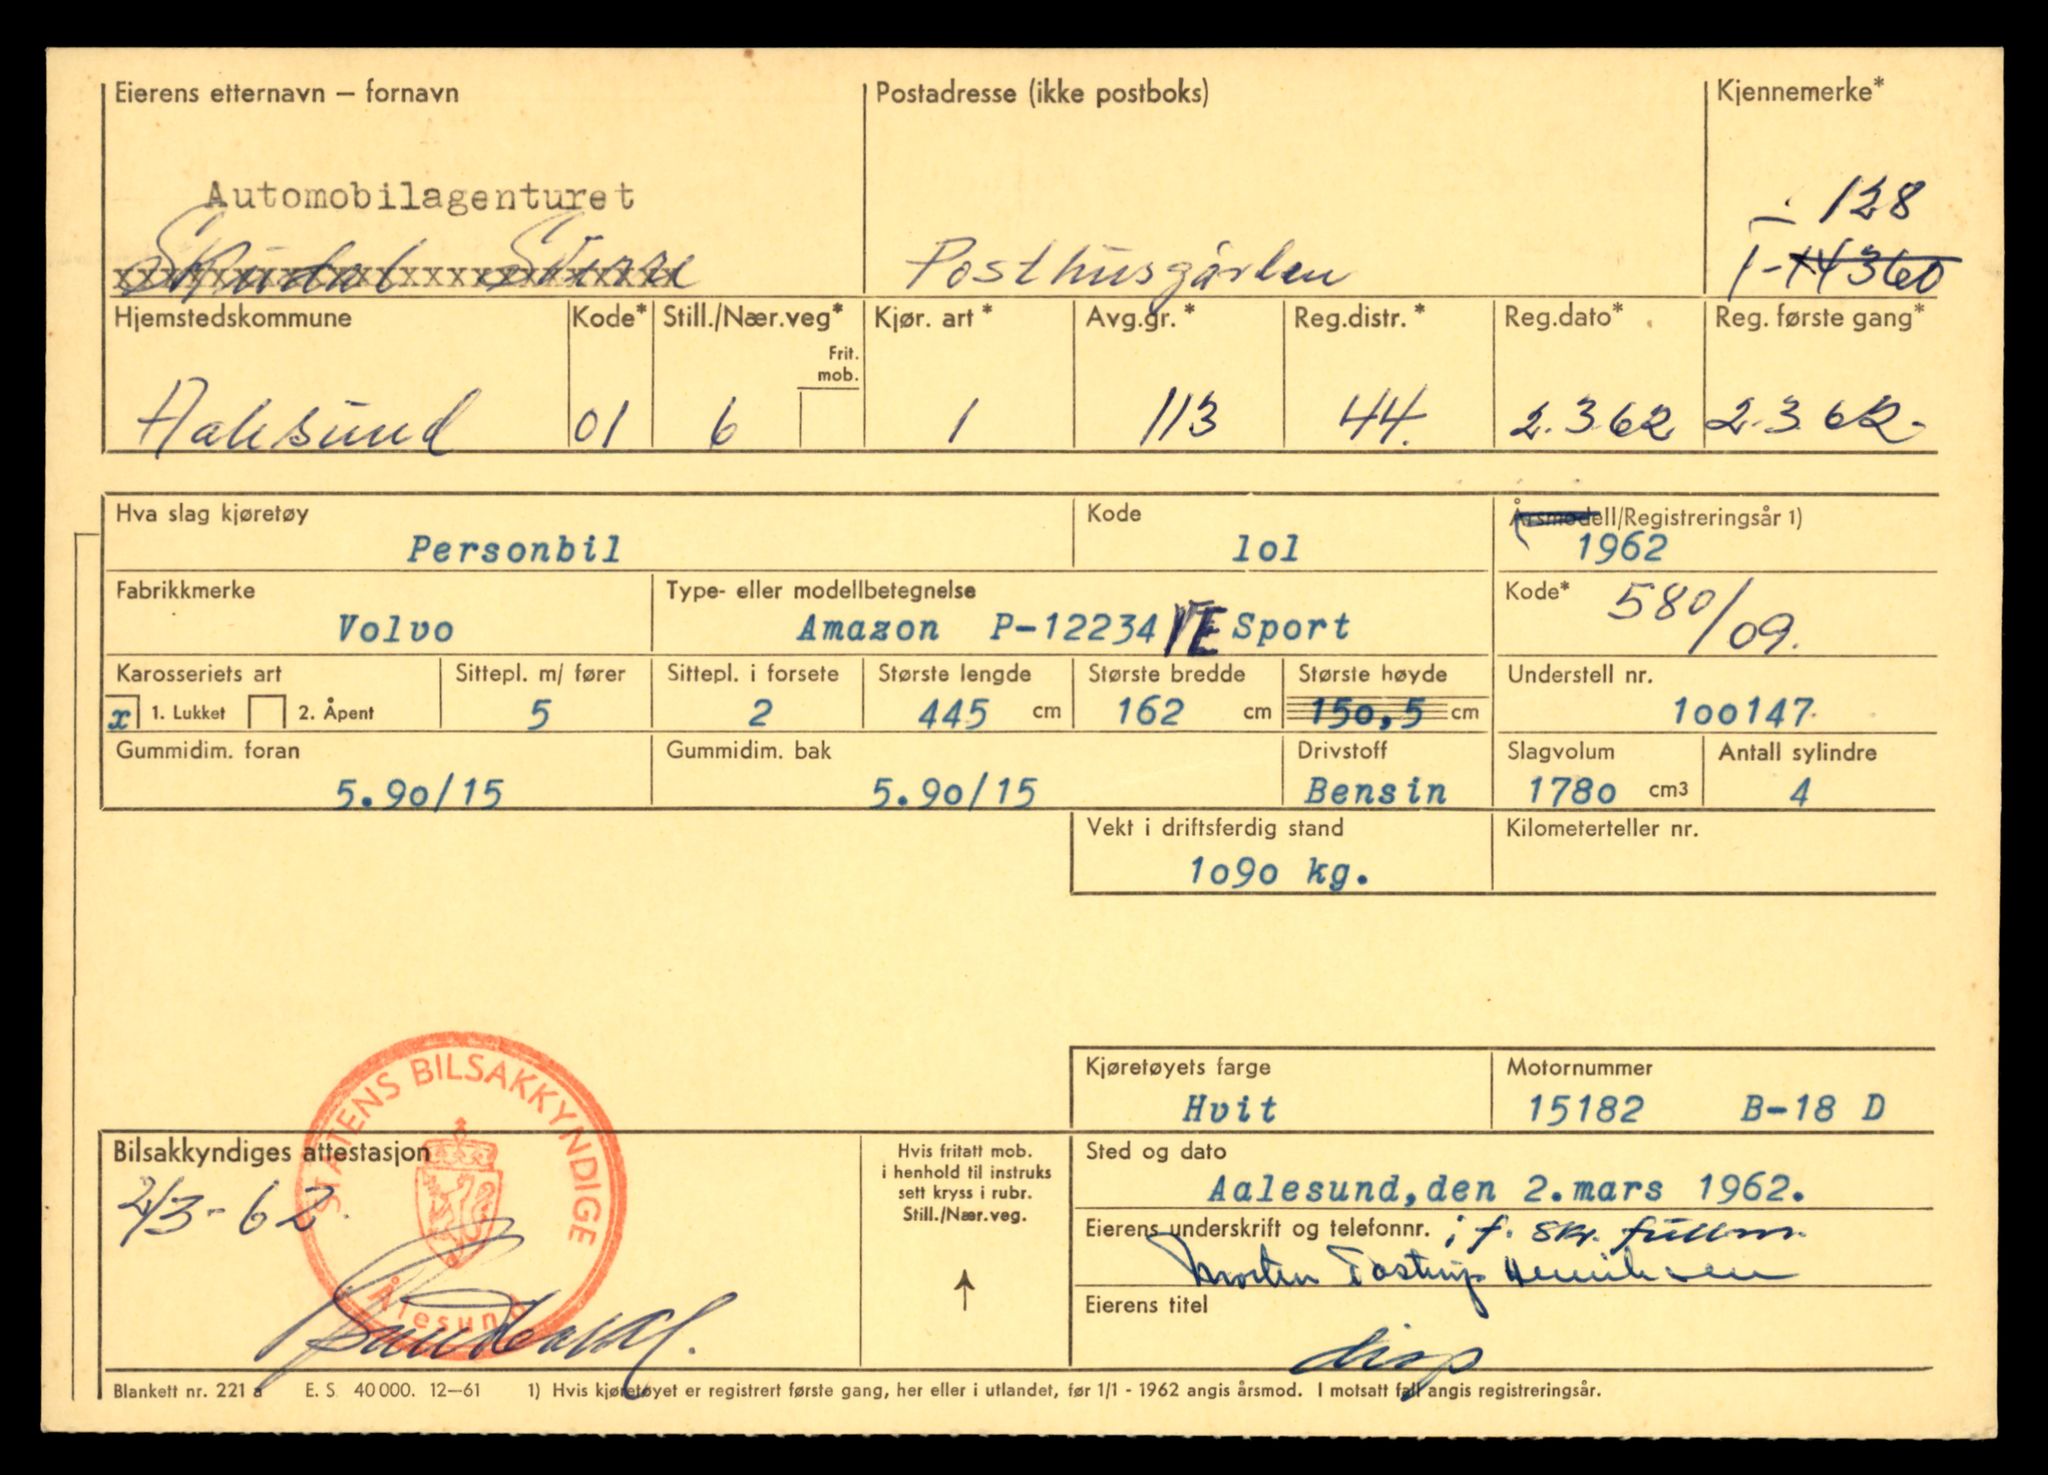 Eierens etternavn – fornavn
Postadresse (ikke postboks)
Kjennemerke*
Automobilagenturet
128
xxxxxxxxxxxxxxxxxxxxxxxxx
Posthusgården
14360
Hjemstedskommune
Kode*
Still./Nær.veg*
Frit. mob.
Kjør. art *
Avg.gr. *
Reg.distr. *
Reg.dato*
Reg. første gang*
Aalesund
01
6
1
113
44.
2.3.62
2.3.62.
Hva slag kjøretøy
Kode
Årsmodell/Registreringsår 1)
Personbil
lol
1962
Fabrikkmerke
Type- eller modellbetegnelse
Kode*
580/09.
Volvo
Amazon P-12234 VE Sport
Karosseriets art
Sittepl. m/ fører
Sittepl. i forsete
Største lengde
Største bredde
Største høyde
Understell nr.
x 1. Lukket
2. Åpent
5
2
445 cm
162 cm
150,5 cm
100147
Gummidim. foran
Gummidim. bak
Drivstoff
Slagvolum
Antall sylindre
5.90/15
5.90/15
Bensin
1780 cm3
4
Vekt i driftsferdig stand
Kilometerteller nr.
1090 kg.
Kjøretøyets farge
Motornummer
Hvit
15182 B-18 D
STATENS BILSAKKYNDIGE
Ålesund
Bilsakkyndiges attestasjon
2/3-62.
Hvis fritatt mob.
i henhold til instruks
sett kryss i rubr.
Still./Nær.veg.
↑
Sted og dato
Aalesund,den 2.mars 1962.
Eierens underskrift og telefonnr. i f. skr. fullm.
Morten Tostrup Henriksen
Eierens titel
disp
Blankett nr. 221 a E. S. 40 000. 12–61 1) Hvis kjøretøyet er registrert første gang, her eller i utlandet, før 1/1 - 1962 angis årsmod. I motsatt fall angis registreringsår.